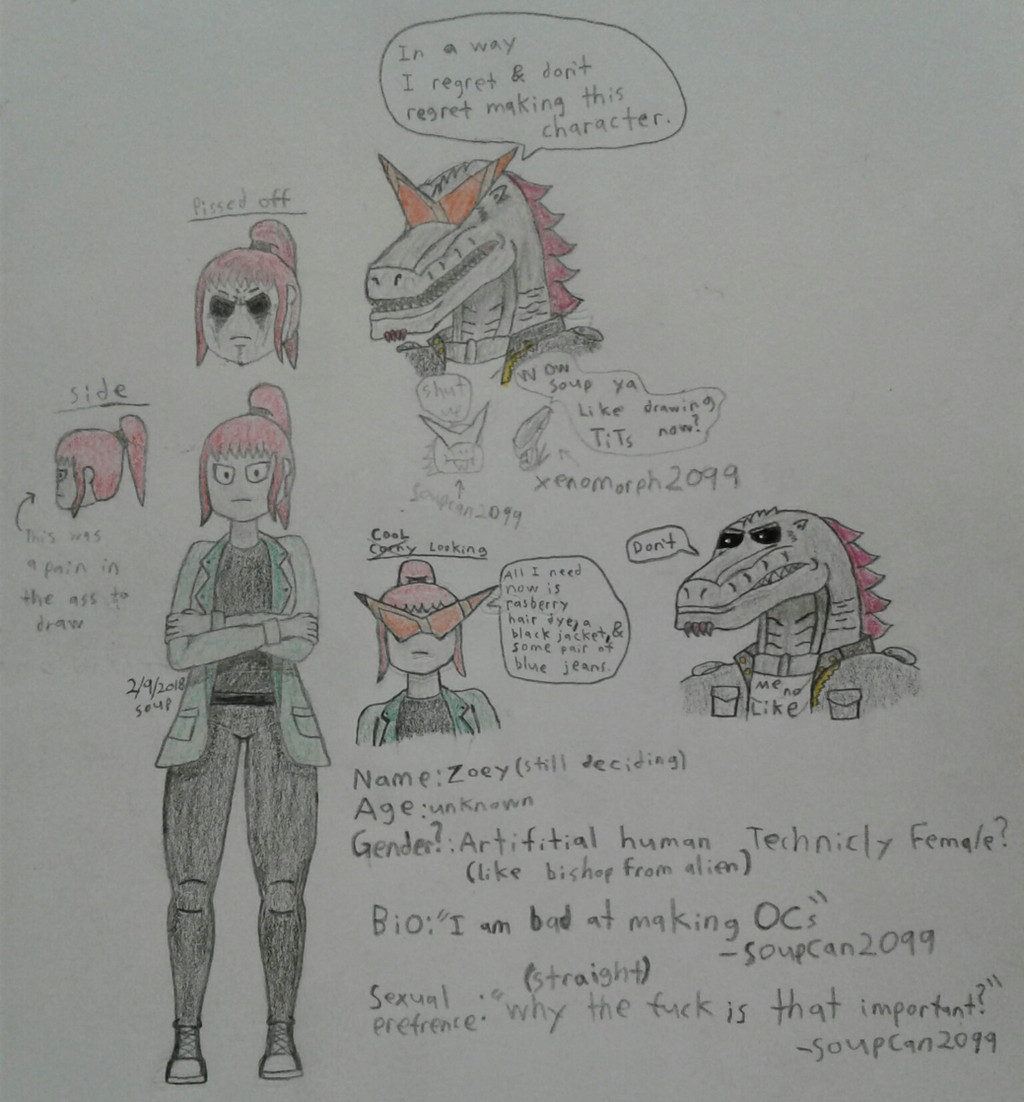 In a way
I regret & don't
regret making this
character.
Pissed off
side
This was
a pain in
the ass to
draw
shut
up
WOW
soup ya
Like drawing
TiTs now?
soupcan2099
xenomorph2099
Cool
Looking
All I need
now is
rasberry
hair dye, a
black jacket, &
some pair of
blue jeans.
Don't
me no
Like
2/9/2018
soup
Name: Zoey (still deciding)
Age: unknown
Gender?: Artifitial human Technicly Female?
(like bishop from alien)
Bio: "I am bad at making OCs"
-soupcan2099
(straight)
Sexual
prefrence: "why the fuck is that important?"
-soupcan2099